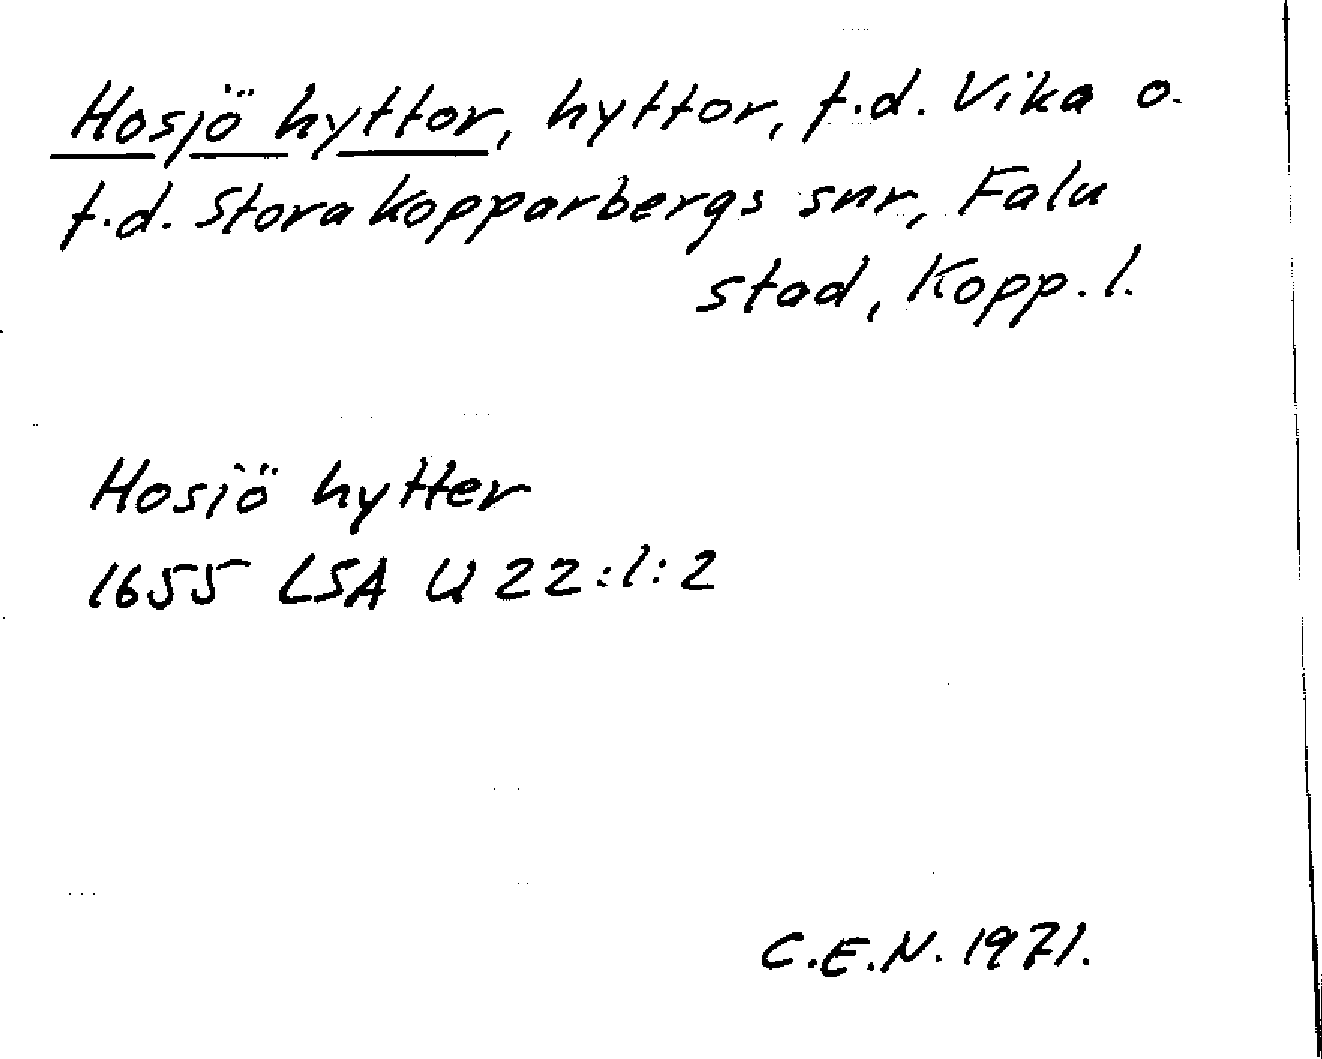 Hosjö hyttor, hyttor, f.d. Vika o.
f.d. Stora Kopparbergs snr, Falu
stad, Kopp. l.
Hosiö hytter
1655 LSA U 22:1:2
C.E.N. 1971.